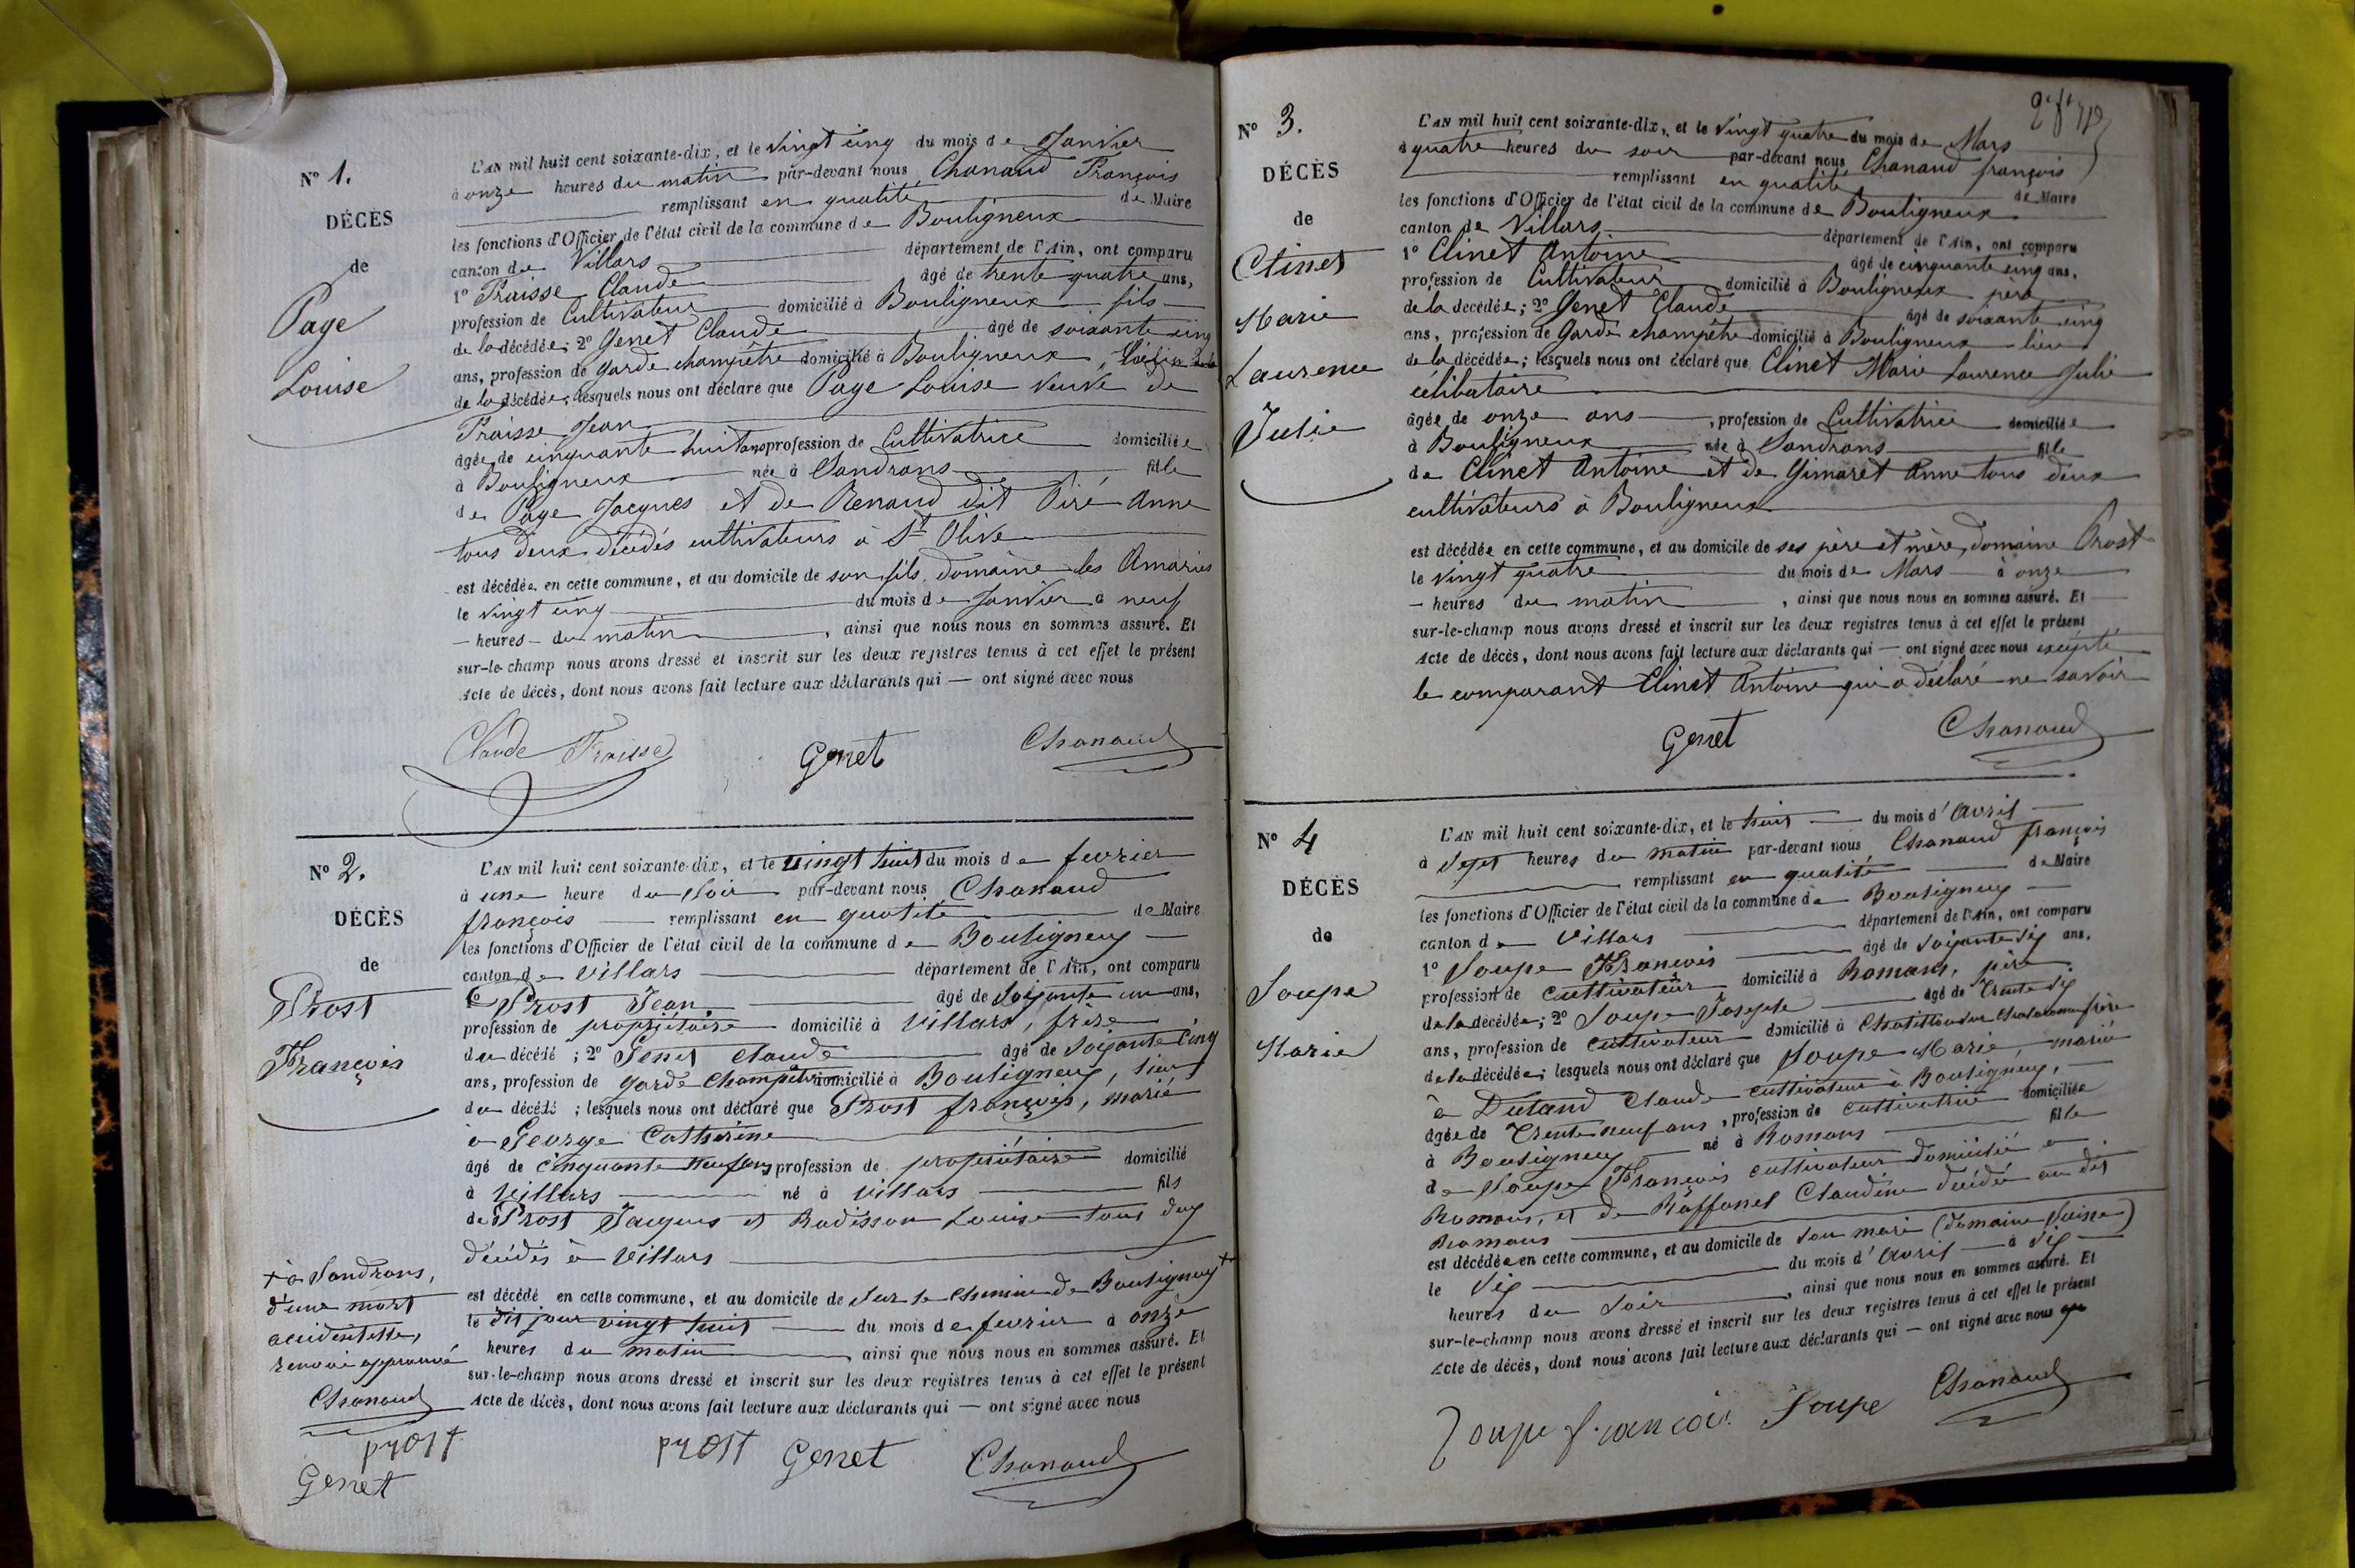 N° 1.
DÉCÈS
de
Page
Louise
L'AN mil huit cent soixante-dix, et le vingt cinq du mois de Janvier
à onze heures du matin par-devant nous Chanaud François
remplissant en qualité de Maire
les fonctions d'Officier de l'état civil de la commune de Bouligneux
canton de Villars département de l'Ain, ont comparu
1° Fraisse Claude âgé de trente quatre ans,
profession de Cultivateur domicilié à Bouligneux fils
de la décédée; 2° Genet Claude âgé de soixante cinq
ans, profession de garde champêtre domicilié à Bouligneux,
de la décédée; lesquels nous ont déclaré que Page Louise veuve de
Fraisse Jean
âgée de cinquante huit ans profession de Cultivatrice domiciliée
à Bouligneux née à Sandrans fille
de Page Jacques et de Renaud dit Piré Anne
tous deux décédés cultivateurs à St Olive
est décédée en cette commune, et au domicile de son fils, domaine les Amaries
le vingt cinq du mois de Janvier à neuf
heures du matin, ainsi que nous nous en sommes assuré. Et
sur-le-champ nous avons dressé et inscrit sur les deux registres tenus à cet effet le présent
Acte de décès, dont nous avons fait lecture aux déclarants qui — ont signé avec nous
Claude Fraisse Genet Chanaud
N° 2.
DÉCÈS
de
Prost
François
L'AN mil huit cent soixante-dix, et le vingt huit du mois de fevrier
à une heure du soir par-devant nous Chanaud
françois remplissant en qualité de Maire
les fonctions d'Officier de l'état civil de la commune de Bouligneux
canton de Villars département de l'Ain, ont comparu
1° Prost Jean âgé de soixante un ans,
profession de propriétaire domicilié à Villars, frère
du décédé; 2° Genet Claude âgé de soixante cinq
ans, profession de garde champêtre domicilié à Bouligneux, lieu
du décédé; lesquels nous ont déclaré que Prost françois, marié
à George Catherine
âgé de cinquante neuf ans profession de propriétaire domicilié
à Villars né à Villars fils
de Prost Jacques et Radisson Louise tous deux
décédés à Villars
est décédé en cette commune, et au domicile de sur le chemin de Bouligneux +
le dit jour vingt huit du mois de fevrier à onze
heures du matin, ainsi que nous nous en sommes assuré. Et
sur-le-champ nous avons dressé et inscrit sur les deux registres tenus à cet effet le présent
Acte de décès, dont nous avons fait lecture aux déclarants qui — ont signé avec nous
+ à Sandrans,
d'une mort
accidentelle,
renvoi approuvé
Chanaud
prost
Genet
prost Genet Chanaud
N° 3.
DÉCÈS
de
Clinet
Marie
Laurence
Julie
L'AN mil huit cent soixante-dix, et le vingt quatre du mois de Mars
à quatre heures du soir par-devant nous Chanaud françois
remplissant en qualité de Maire
les fonctions d'Officier de l'état civil de la commune de Bouligneux
canton de Villars département de l'Ain, ont comparu
1° Clinet Antoine âgé de cinquante cinq ans,
profession de Cultivateur domicilié à Bouligneux père
de la décédée; 2° Genet Claude âgé de soixante cinq
ans, profession de Garde champêtre domicilié à Bouligneux lieu
de la décédée; lesquels nous ont déclaré que Clinet Marie Laurence Julie
célibataire
âgée de onze ans, profession de Cultivatrice domiciliée
à Bouligneux née à Sandrans fille
de Clinet Antoine et de Gimaret Anne tous deux
cultivateurs à Bouligneux
est décédée en cette commune, et au domicile de ses père et mère, domaine Prost
le vingt quatre du mois de Mars à onze
heures du matin, ainsi que nous nous en sommes assuré. Et
sur-le-champ nous avons dressé et inscrit sur les deux registres tenus à cet effet le présent
Acte de décès, dont nous avons fait lecture aux déclarants qui — ont signé avec nous excepté
le comparant Clinet Antoine qui a déclaré ne savoir
Genet Chanaud
N° 4
DÉCÈS
de
Soupe
Marie
L'AN mil huit cent soixante-dix, et le huit du mois d'avril
à sept heures du matin par-devant nous Chanaud françois
remplissant en qualité de Maire
les fonctions d'Officier de l'état civil de la commune de Bouligneux
canton de Villars département de l'Ain, ont comparu
1° Soupe François âgé de soixante six ans,
profession de cultivateur domicilié à Romans, père
de la décédée; 2° Soupe Joseph âgé de trente six
ans, profession de cultivateur domicilié à Chatillon sur Chalaronne frère
de la décédée; lesquels nous ont déclaré que Soupe Marie, mariée
à Dutand Claude cultivateur à Bouligneux,
âgée de trente neuf ans, profession de cultivatrice domiciliée
à Bouligneux né à Romans fille
de Soupe François cultivateur domicilié à
Romans, et de Raffanel Claudine décédée au dit
Romans
est décédée en cette commune, et au domicile de son mari (domaine)
le six du mois d'avril à six
heures du soir, ainsi que nous nous en sommes assuré. Et
sur-le-champ nous avons dressé et inscrit sur les deux registres tenus à cet effet le présent
Acte de décès, dont nous avons fait lecture aux déclarants qui — ont signé avec nous
Soupe françois Soupe Chanaud